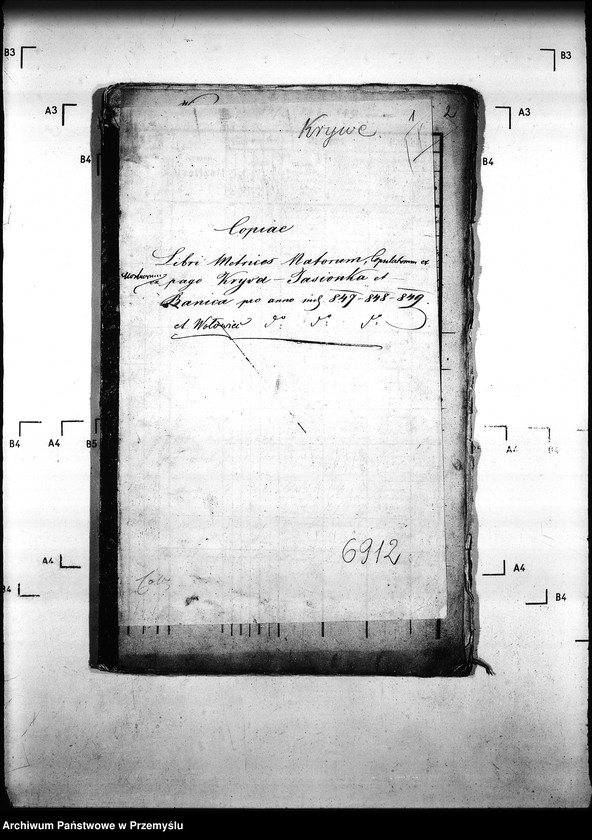 B3
B3
A3
A3
B4
B4
1 2
Krywe
Copiae
Libri Metrices Natorum, Copulatorum et
Mortuorum
ex pago Krywa-Jasionka et
Banica pro anno incl 847-848-849.
et Wołowiec dº. dº. dº.
B4
A4
B5
A4
B4
6912
A4
A4
B4
B4
Archiwum Państwowe w Przemyślu